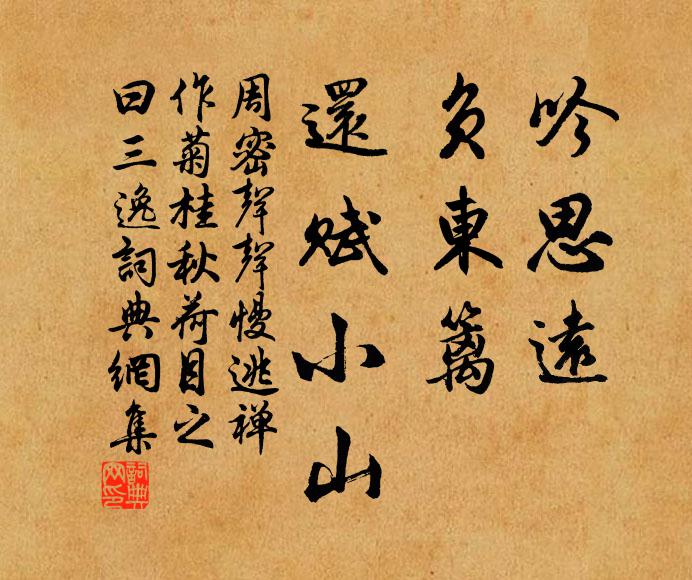 吟思遠
負東籬
還賦小山
周密聲聲慢逃禅
作菊桂秋荷目之
曰三逸詞典網集
詞典
网印